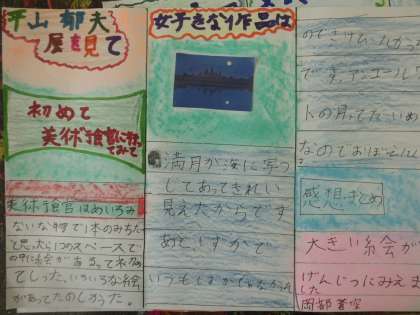 平山郁夫
展を見て
初めて
美術館に行
ってみて
美術館はめいろみ
たいな物で1本のみちた
と思ったら1つのスペースで
の中に絵が
てしった、いろいろな絵
があってたのしかった。
女子きな作品は
満月が海に写っ
してあってきれい
見えたからです
あと、しずかで
いつも
です。アンコールワ
トの月ってだいめ
なのでおぼえ
感想まとめ
大きい絵が
げんじつにみえま
した
岡部蒼空